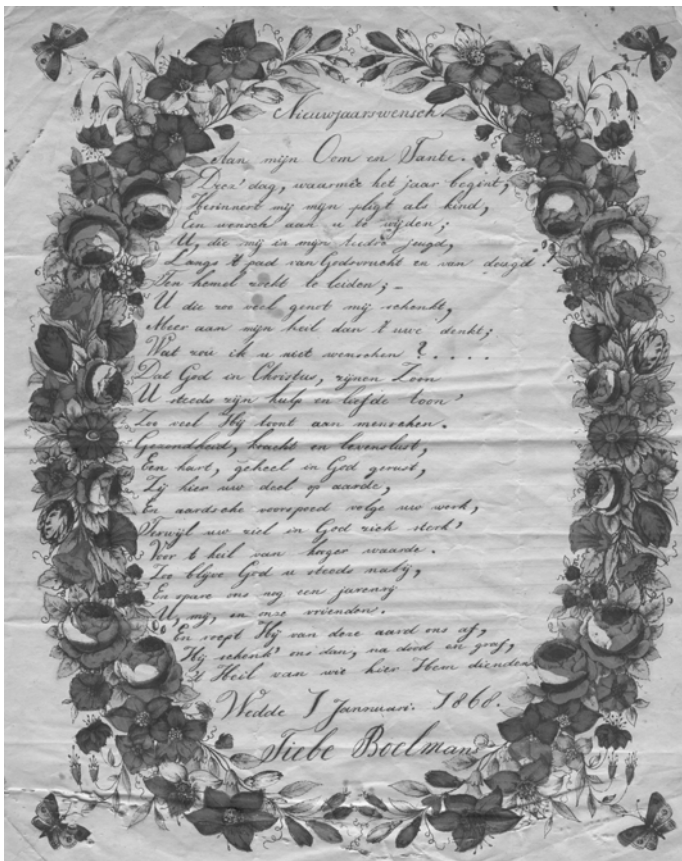 Nieuwjaarswensch.
Aan mijn Oom en Tante.
Deez' dag, waarmeê het jaar begint,
Herinnert mij mijn pligt als kind,
Een wensch aan u te wijden;
U, die mij in mijn teedre jeugd,
Langs 't pad van Godsvrucht en van deugd!
Ten hemel zocht te leiden; –
U die zoo veel genot mij schenkt,
Meer aan mijn heil dan 't uwe denkt;
Wat zou ik u niet wenschen ?....
Dat God in Christus, zijnen Zoon
U steeds zijn hulp en liefde toon'
Zoo veel Hij toont aan menschen.
Gezondheid, kracht en levenslust,
Een hart, geheel in God gerust,
Zij hier uw deel op aarde,
En aardsche voorspoed volge uw werk,
Terwijl uw ziel in God zich sterk'
Voor 't heil van hooger waarde.
Zoo blijve God u steeds nabij,
En spare ons nog een jarenrij
U, mij, en onze vrienden.
En roept Hij van deze aard ons af,
Hij schenk' ons dan, na dood en graf,
't Heil van wie hier Hem dienden
Wedde 1 Januuari. 1868.
Tiebe Boelmans